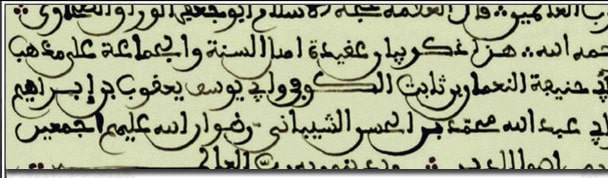 رب العالمين قال العلامة حجة الاسلام ابو جعفر الوراق الطحاوي
حمه الله هذا ذكر بيان عقيدة اهل السنة والجماعة على مذهب
ابي حنيفة النعمان بن ثابت الكوفي وابي يوسف يعقوب بن إبراهيم
ابي عبد الله محمد بن الحسن الشيباني رضوان الله عليهم اجمعين
اصول الدين